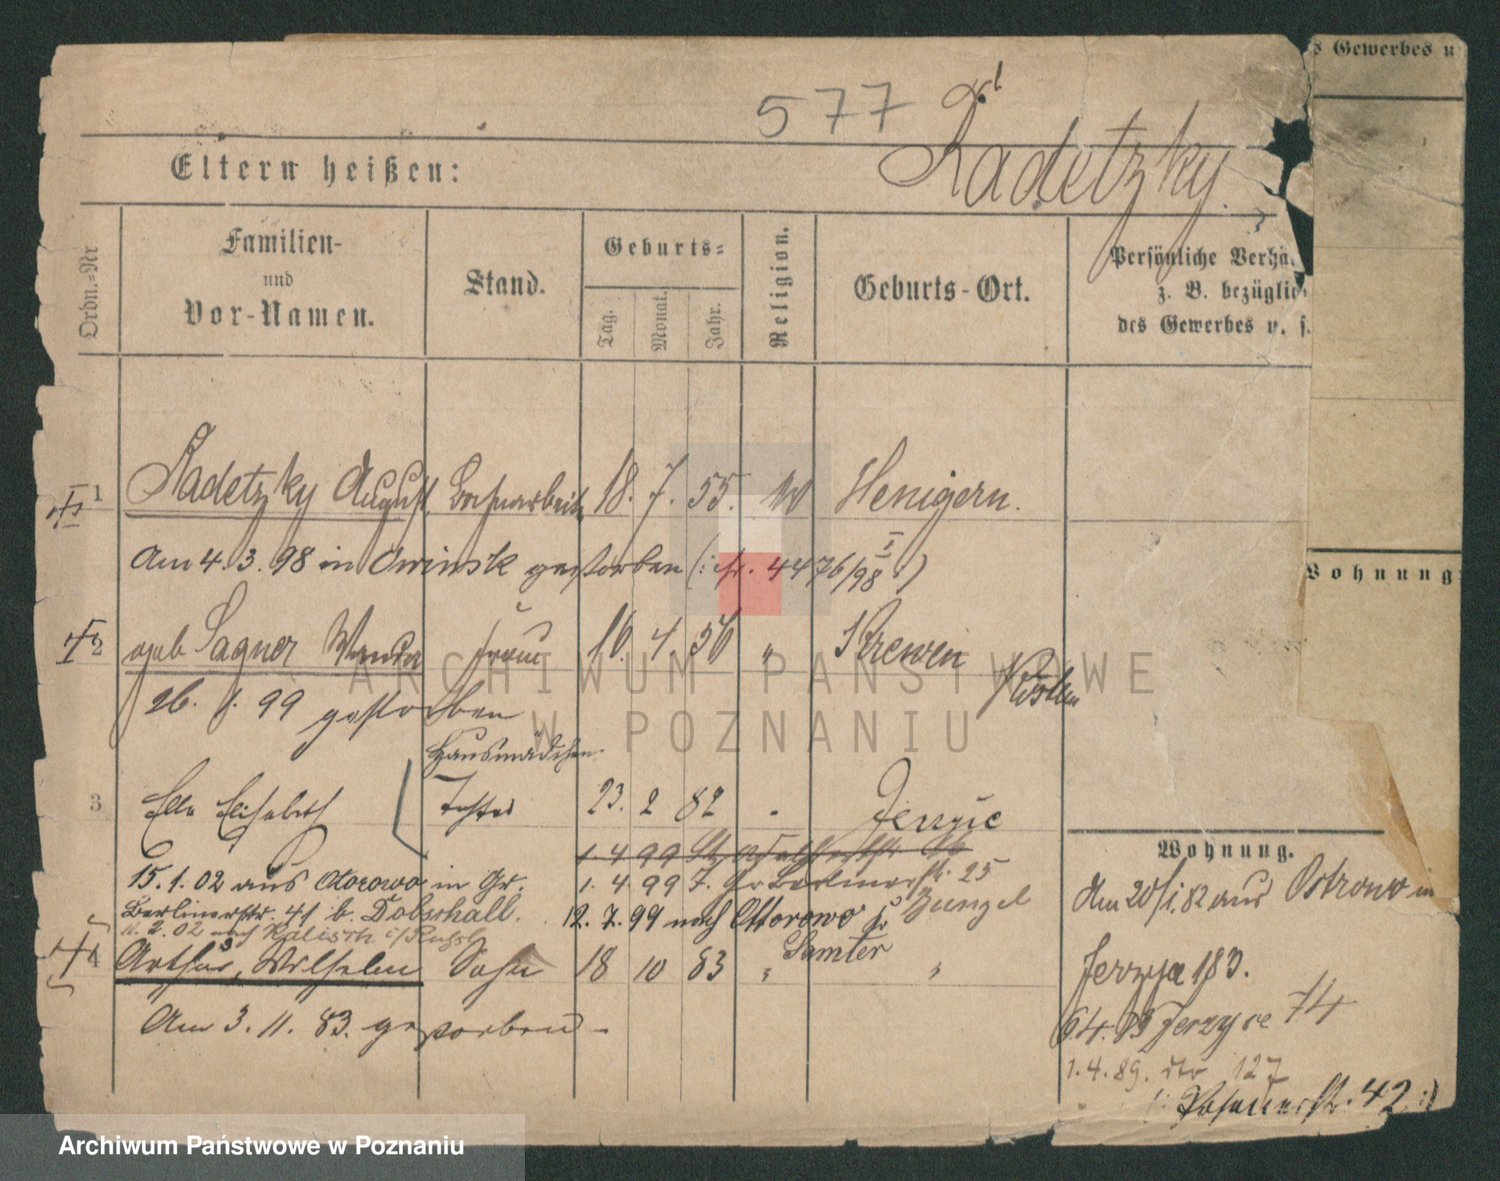 s Gewerbes u
577
Radetzky.
Eltern heißen:
Ordn.-Nr
Familien-
und
Vor-Namen.
Stand.
Geburts-
Tag.
Monat.
Jahr.
Religion.
Geburts-Ort.
Persönliche Verhä
z. B. bezüglic
des Gewerbes u. s.
1 Radetzky August Bahnarbeit. 18. 7. 55. Henigern.
Am 4.3.98 in Owinsk gestorben (: cfr. 4476/98 I :)
Wohnung
2 geb Sagner Wanda Frau 16. 4. 56 " Krewen
Kosten
26. 1. 99 gestorben
Hausmädchen
3 Ella Elisabeth Tochter 23. 2 82 Jerzyce
1 4 99
Wohnung.
15.1.02 aus Otorowo in Gr. 1. 4. 99 7. Gr Berlinerstr. 25
Berlinerstr. 41 b. Dobschall. 12. 7. 99 nach Ottorowo Kr
Samter
11. 2. 02 nach Kalisch i/Russl
Am 20/1.82 aus Ostrowo in
4 Arthur, Wilhelm Sohn 18 10 83 " "
Jerzyce 183.
Am 3. 11. 83. gestorben -
6.4.83 Jerzyce 74
1.4.89. dto 127
(: Posenerstr. 42 :)
ARCHIWUM PAŃSTWOWE
W POZNANIU
Archiwum Państwowe w Poznaniu